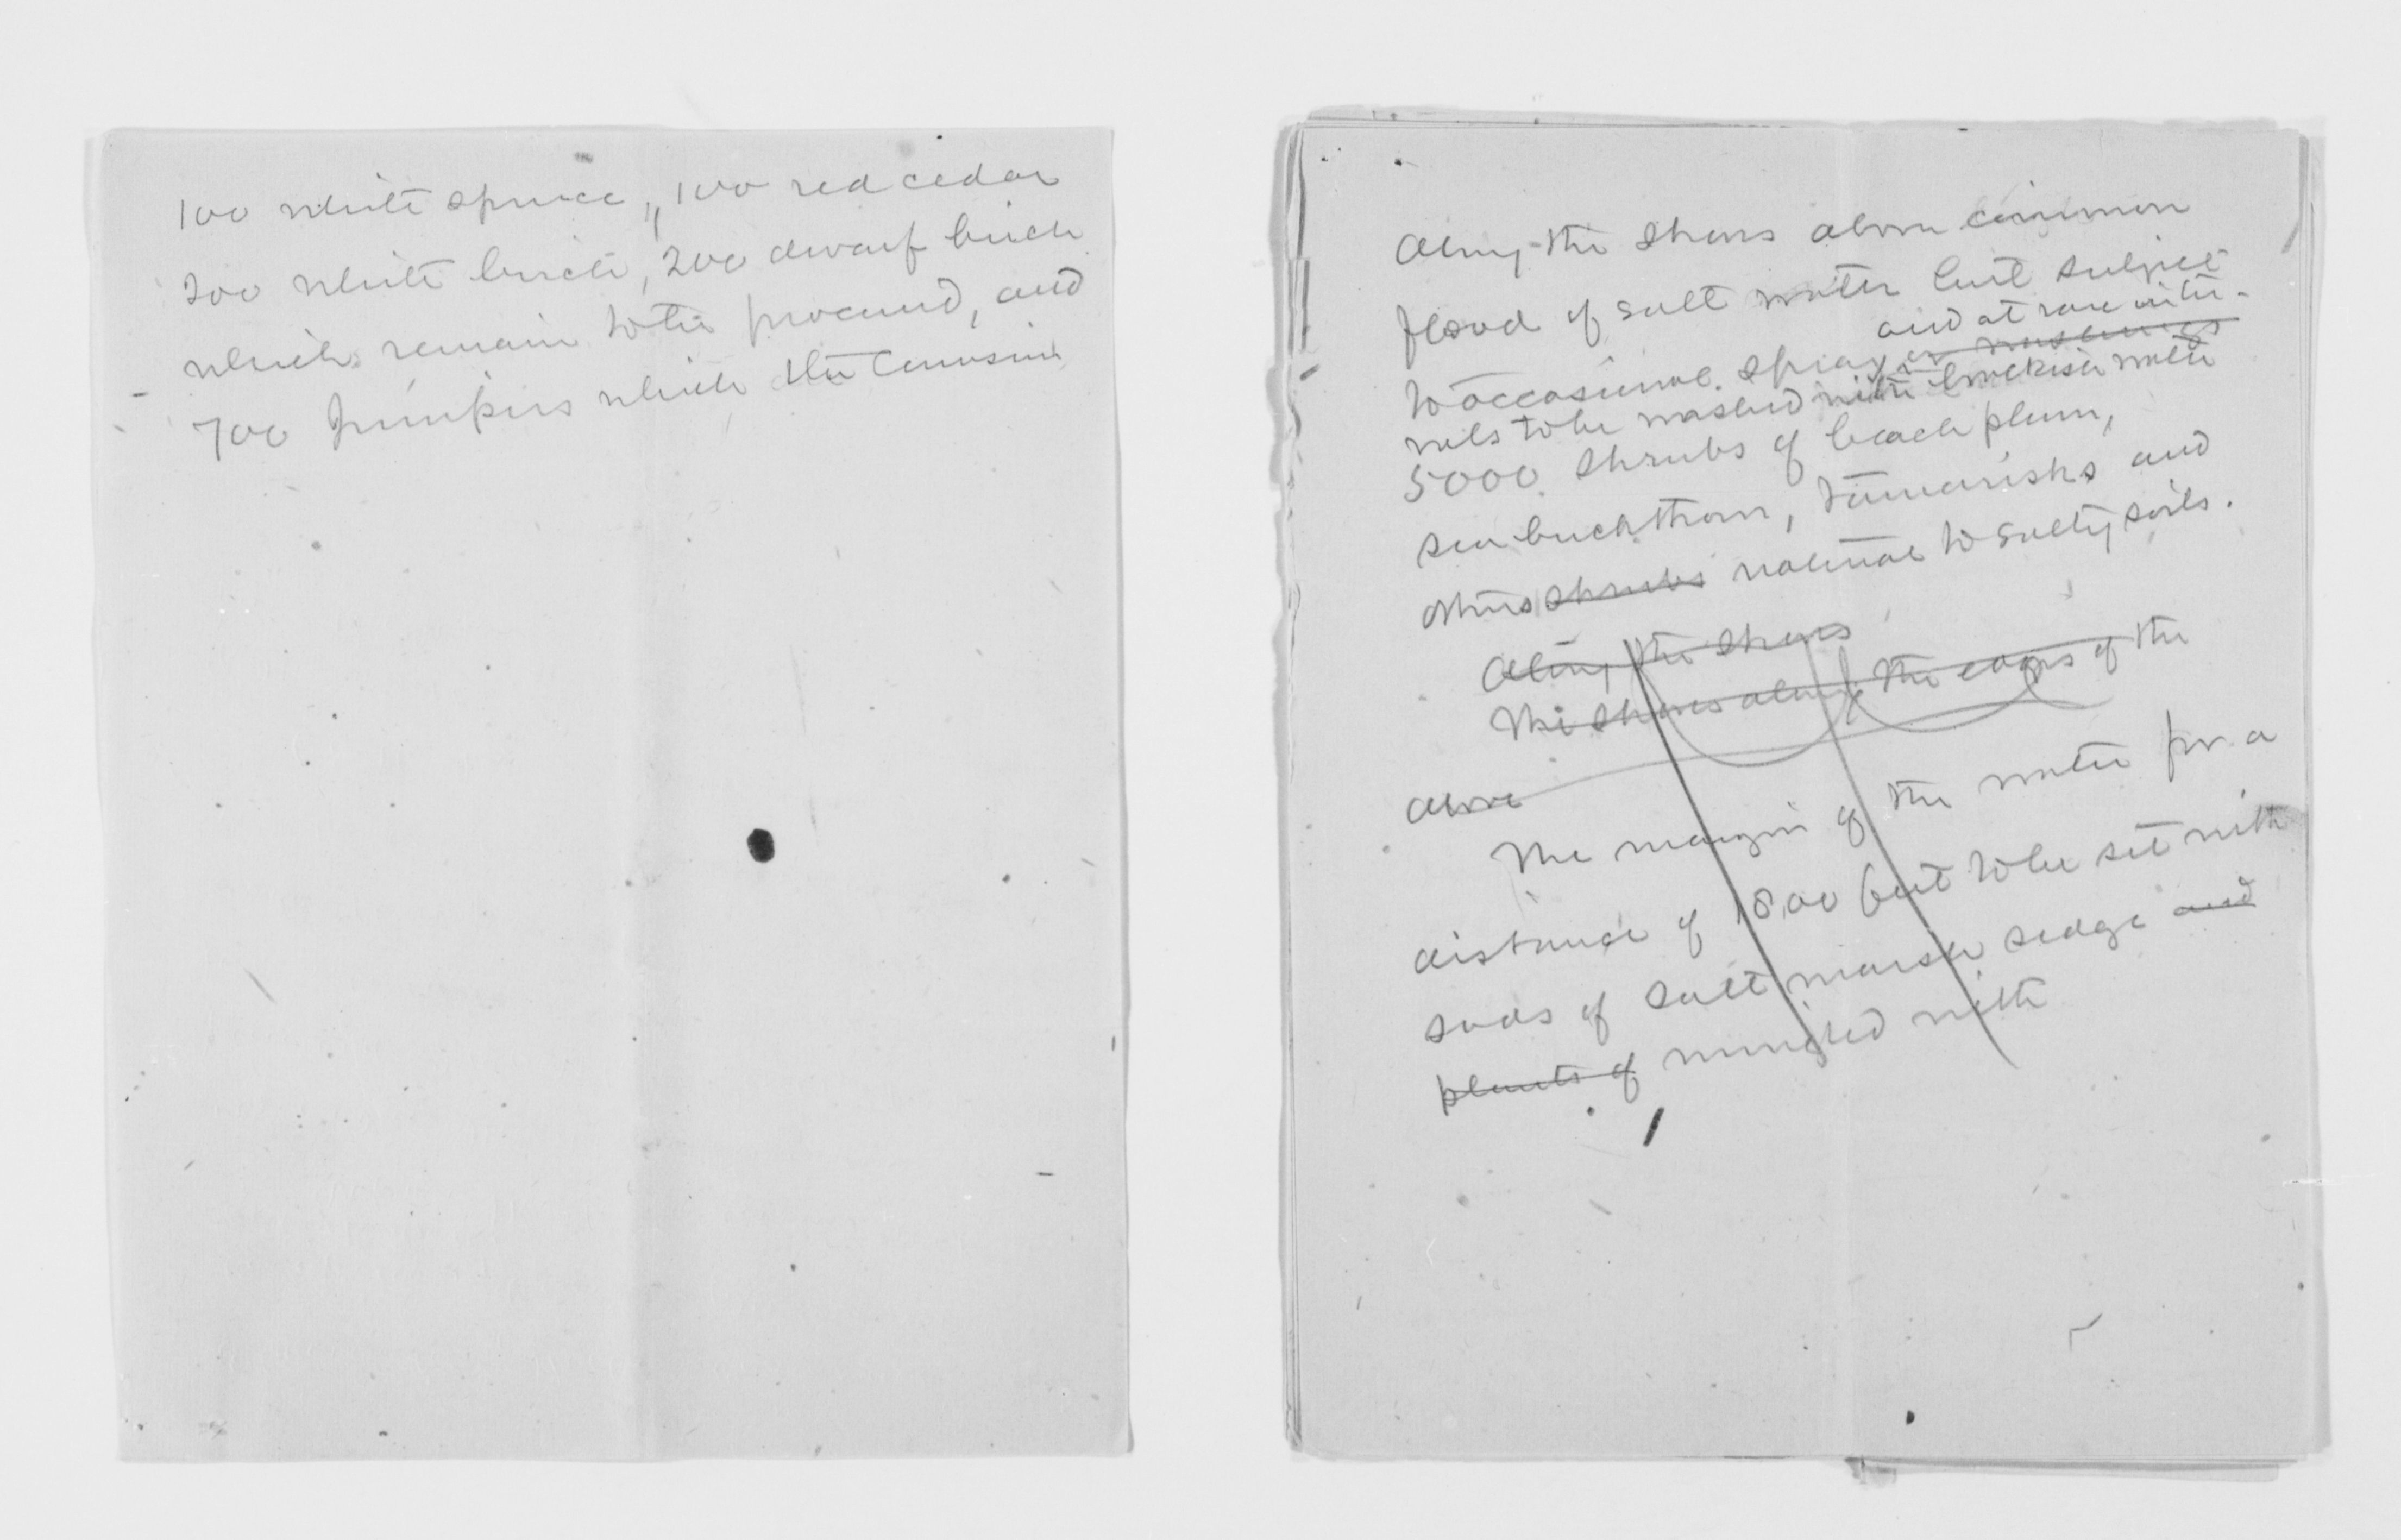 100 white spruce, 100 red cedar
200 white birch, 200 dwarf birch
which remain to be procured, and
700 Junipers which the Commssin
Along the shores above common
flood of salt water but subject
and at rare inter-
to occasional spray or washings
vals to be washed with brackish water
5000 shrubs of beach plum,
sea buckthorn, tamarisks and
others shrubs natural to salty soils.
Along the shores
The shores along the edges of the
above
The margin of the water for a
distance of 1800 feet to be set with
sods of salt marsh sedge and
plants of mingled with